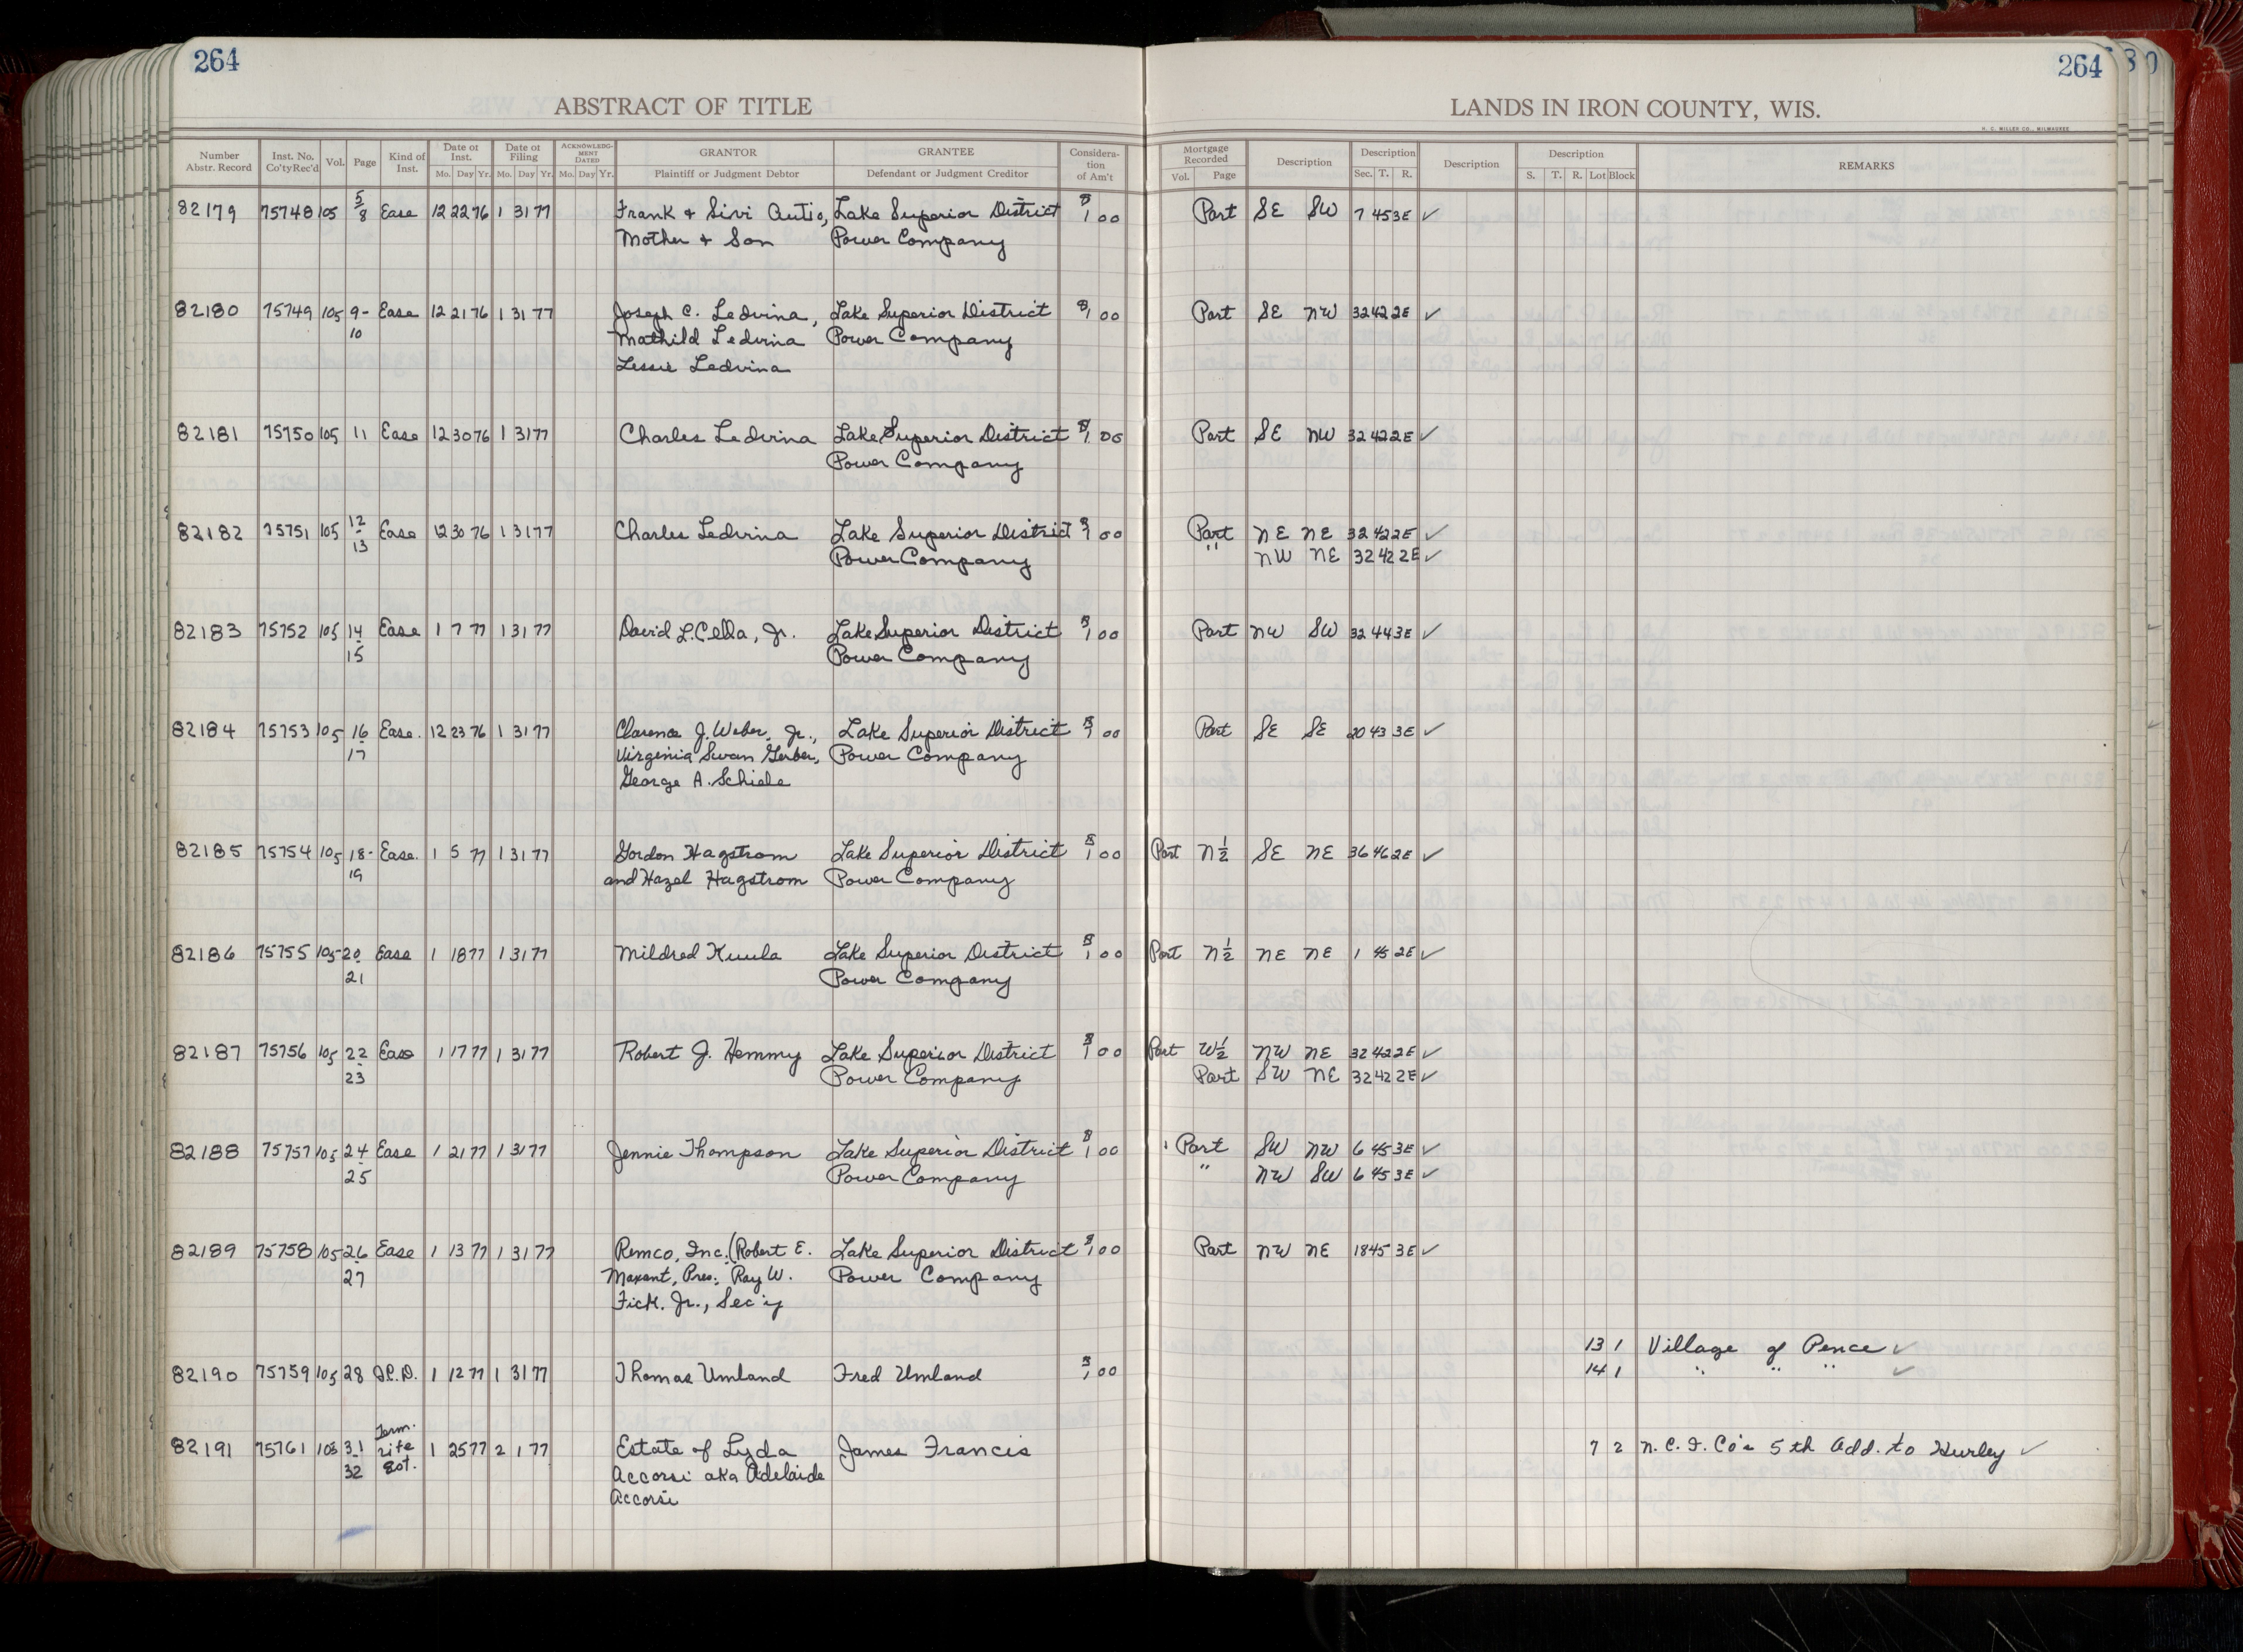 264
264
ABSTRACT OF TITLE
LANDS IN IRON COUNTY, WIS.
H. C. MILLER CO., MILWAUKEE
Number Abstr. Record Inst. No. Co'ty Rec'd Vol. Page Kind of Inst. Date of Inst. Mo. Day Yr. Date of Filing Mo. Day Yr. ACKNOWLEDGMENT DATED Mo. Day Yr. GRANTOR Plaintiff or Judgment Debtor GRANTEE Defendant or Judgment Creditor Consideration of Am't Mortgage Recorded Vol. Page Description Description Sec. T. R. Description Description S. T. R. Lot Block REMARKS
82179 75748 105 5/8 Ease 12 22 76 1 31 77 Frank & Sivi Autio, Lake Superior District $1 00 Part SE SW 7 45 3E ✓
Mother & Son Power Company
82180 75749 105 9- Ease 12 21 76 1 31 77 Joseph C. Ledvina, Lake Superior District $1 00 Part SE NW 32 42 2E ✓
10 Mathild Ledvina Power Company
Lessie Ledvina
82181 75750 105 11 Ease 12 30 76 1 31 77 Charles Ledvina Lake Superior District $1 00 Part SE NW 32 42 2E ✓
Power Company
82182 75751 105 12- Ease 12 30 76 1 31 77 Charles Ledvina Lake Superior District $1 00 Part NE NE 32 42 2E ✓
13 Power Company " NW NE 32 42 2E ✓
82183 75752 105 14- Ease 1 7 77 1 31 77 David L. Cella, Jr. Lake Superior District $1 00 Part NW SW 32 44 3E ✓
15 Power Company
82184 75753 105 16- Ease. 12 23 76 1 31 77 Clarence J. Weber, Jr., Lake Superior District $1 00 Part SE SE 20 43 3E ✓
17 Virginia Swan Gerber, Power Company
George A. Schiele
82185 75754 105 18- Ease. 1 5 77 1 31 77 Gordon Hagstrom Lake Superior District $1 00 Part N½ SE NE 36 46 2E ✓
19 and Hazel Hagstrom Power Company
82186 75755 105 20- Ease 1 18 77 1 31 77 Mildred Kuula Lake Superior District $1 00 Part N½ NE NE 1 45 2E ✓
21 Power Company
82187 75756 105 22- Ease 1 17 77 1 31 77 Robert J. Hemmy Lake Superior District $1 00 Part W½ NW NE 32 42 2E ✓
23 Power Company Part SW NE 32 42 2E ✓
82188 75757 105 24- Ease 1 21 77 1 31 77 Jennie Thompson Lake Superior District $1 00 Part SW NW 6 45 3E ✓
25 Power Company " NW SW 6 45 3E ✓
82189 75758 105 26- Ease 1 13 77 1 31 77 Remco, Inc. (Robert E. Lake Superior District $1 00 Part NW NE 18 45 3E ✓
27 Maxant, Pres.; Ray W. Power Company
Fick. Jr., Sec'y
13 1 Village of Pence ✓
82190 75759 105 28 Q.C.D. 1 12 77 1 31 77 Thomas Umland Fred Umland $1 00 14 1 " " " ✓
Term.
82191 75761 105 31- Life 1 25 77 2 1 77 Estate of Lyda James Francis 7 2 N. C. I. Co's 5th Add. to Hurley ✓
32 Est. Accorsi aka Adelaide
Accorsi